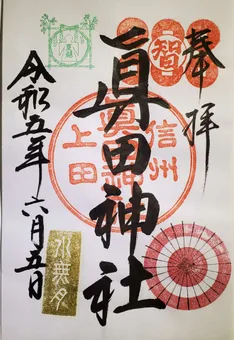 奉拝
智
眞田神社
信州
上田
令和五年六月五日
水無月